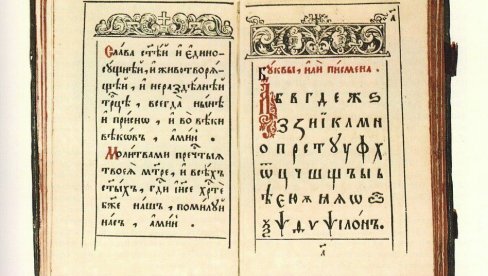 Слава ст҃ѣй и҆ е҆дино
сꙋщнѣй, и҆ животворѧ
щей, и҆ нераздѣлнѣй
трⷪ҇цѣ, всегда̀ нн҃ѣ
и҆ приснѡ, и҆ во вѣки
вѣкѡвъ, а҆минь.
Молитвами пречⷭ҇тыѧ
твоеѧ̀ мт҃ре, и҆ всѣхъ
ст҃ыхъ, гдⷭ҇и і҆и҃се хрⷭ҇те
бж҃е нашъ, помилꙋй
насъ, а҆минь.
а҃
Бꙋквы, и҆лѝ писмена.
А Б В Г Д Е Ж Ѕ
З Ꙁ И Ї К Л М Н
О П Р С Т Ꙋ У Ф Х
Ѿ Ц Ч Ш Щ Ъ Ы Ь
Ѣ Є Ю Ꙗ Ѧ Ѡ Ѳ
Ѯ Ѱ Д Ѵ ѰІЛОНЪ.